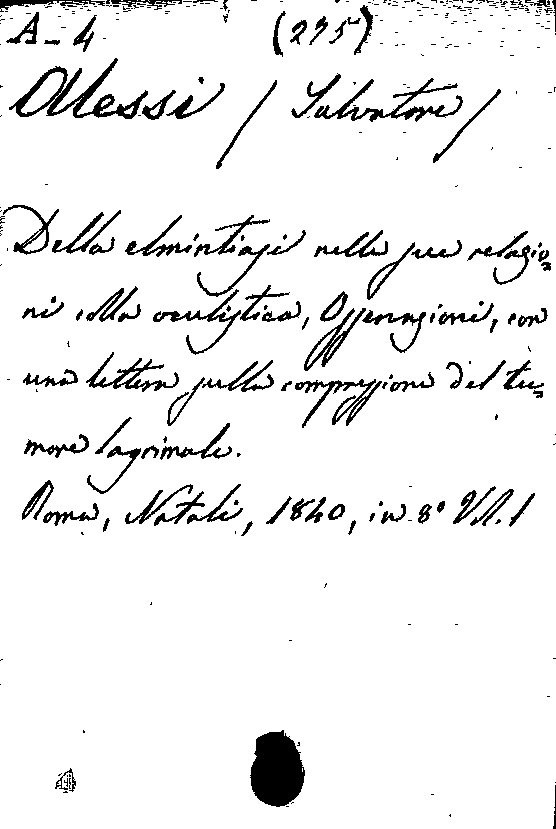 A-4 (295)
Alessi / Salvatore /
Della elmintiasi nelle sue relazio=
ni colla oculistica, Osservazioni, con
una lettera sulla compressione del tu=
more lagrimale.
Roma, Natali, 1840, in 8° Vol. 1